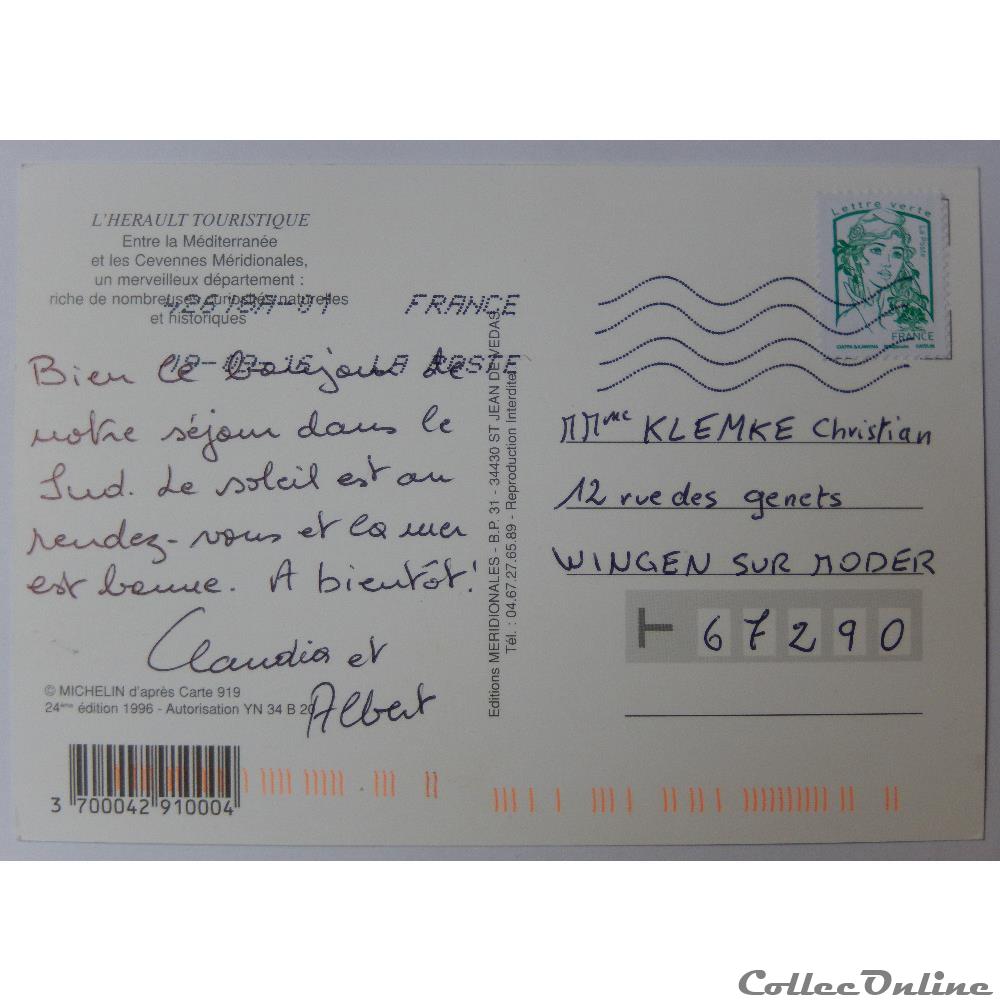 L'HERAULT TOURISTIQUE
Entre la Méditerranée
et les Cevennes Méridionales,
un merveilleux département :
riche de nombreuses curiosités naturelles
et historiques
FRANCE
LA POSTE
Bien le bonjour de
notre séjour dans le
Sud. Le soleil est au
rendez-vous et la mer
est bonne. A bientôt!
Claudia et
Albert
© MICHELIN d'après Carte 919
24ème édition 1996 - Autorisation YN 34 B 20
3 700042 910004
Editions MERIDIONALES - B.P. 31 - 34430 ST JEAN DE VEDAS.
Tél. : 04.67.27.65.89 - Reproduction Interdite
Lettre verte
La Poste
FRANCE
MMme KLEMKE Christian
12 rue des genets
WINGEN SUR MODER
67290
CollecOnline